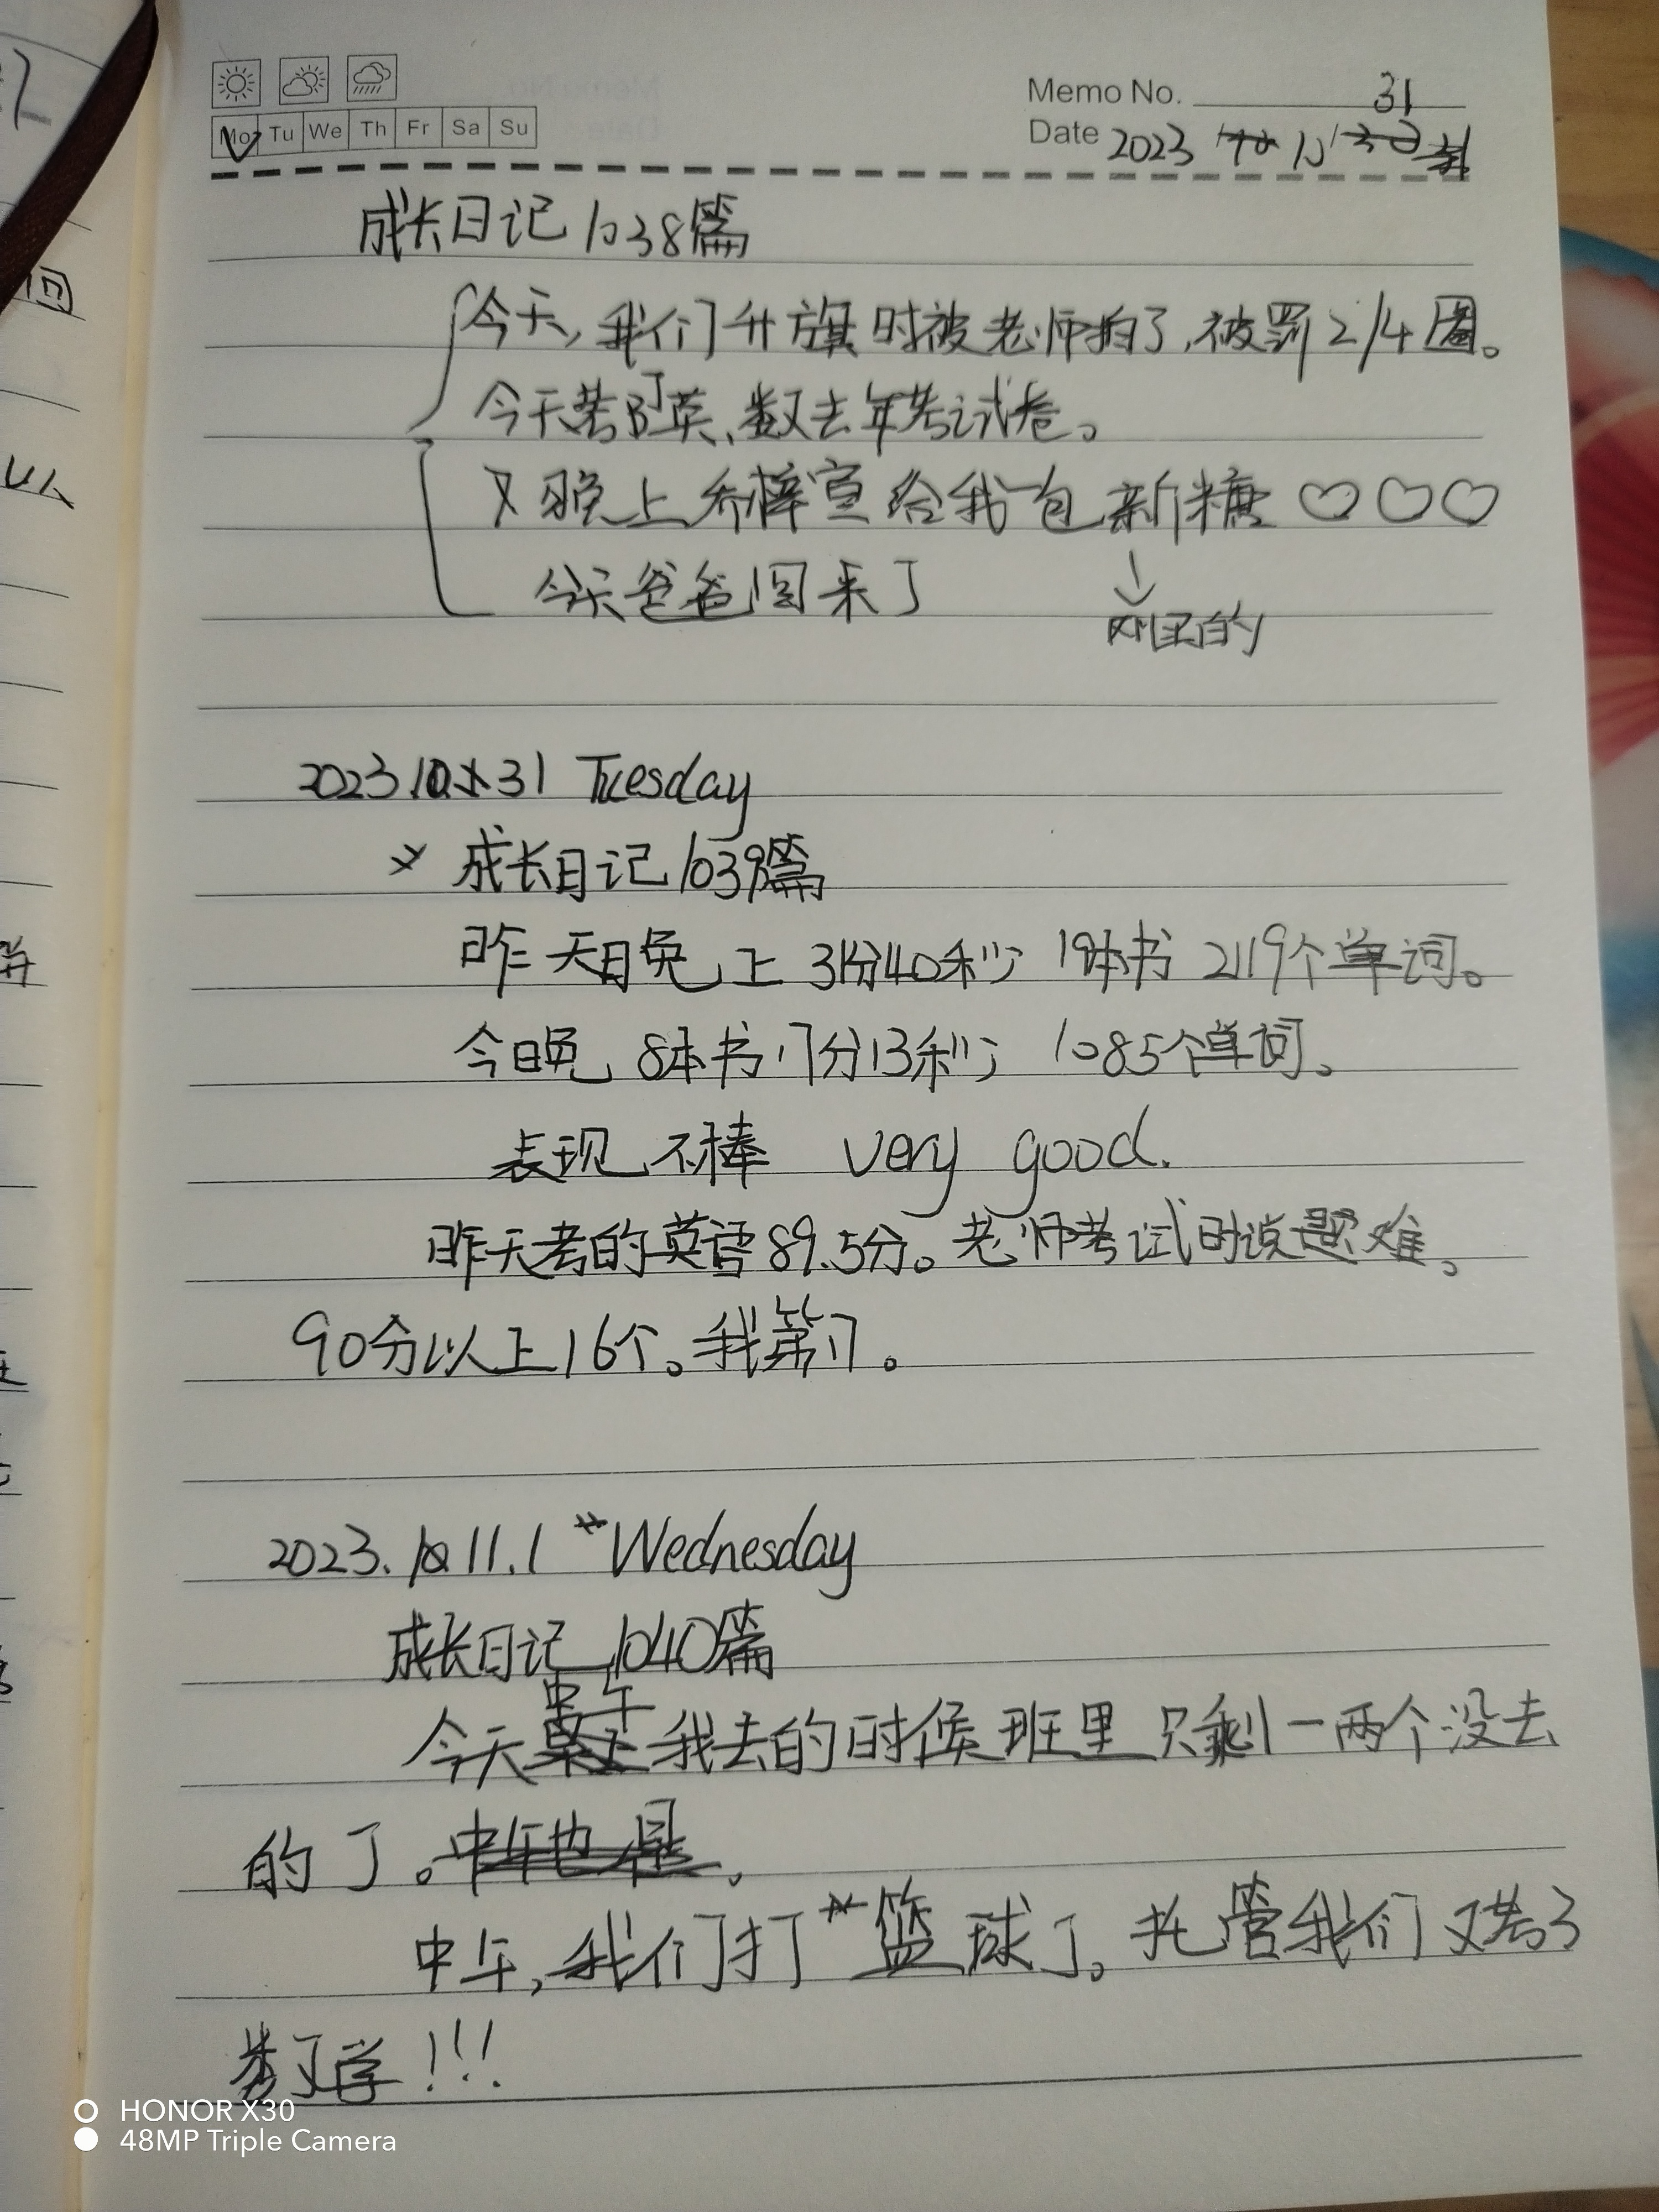 Memo No. 31
Mo Tu We Th Fr Sa Su
Date 2023 10
成长日记1038篇
今天,我们升旗时被老师拍了,被罚2/4圈。
今天考了英、数去年考试卷。
又晚上乔梓宣给我一包新糖♡♡♡
↓
今天爸爸回来了
刚买的
2023.10.31 Tuesday
成长日记1039篇
昨天晚上 31分40秒 19本书 2119个单词。
今晚 8本书 17分13秒 1085个单词。
表现不棒 very good.
昨天考的英语89.5分。老师考试时说题难。
90分以上16个。我第17。
2023.11.1 Wednesday
成长日记1040篇
中午
今天我去的时候班里只剩一两个没去
的了。中午也是。
中午,我们打篮球了。托管我们又考了
数学!!!
回
以人
HONOR X30
48MP Triple Camera